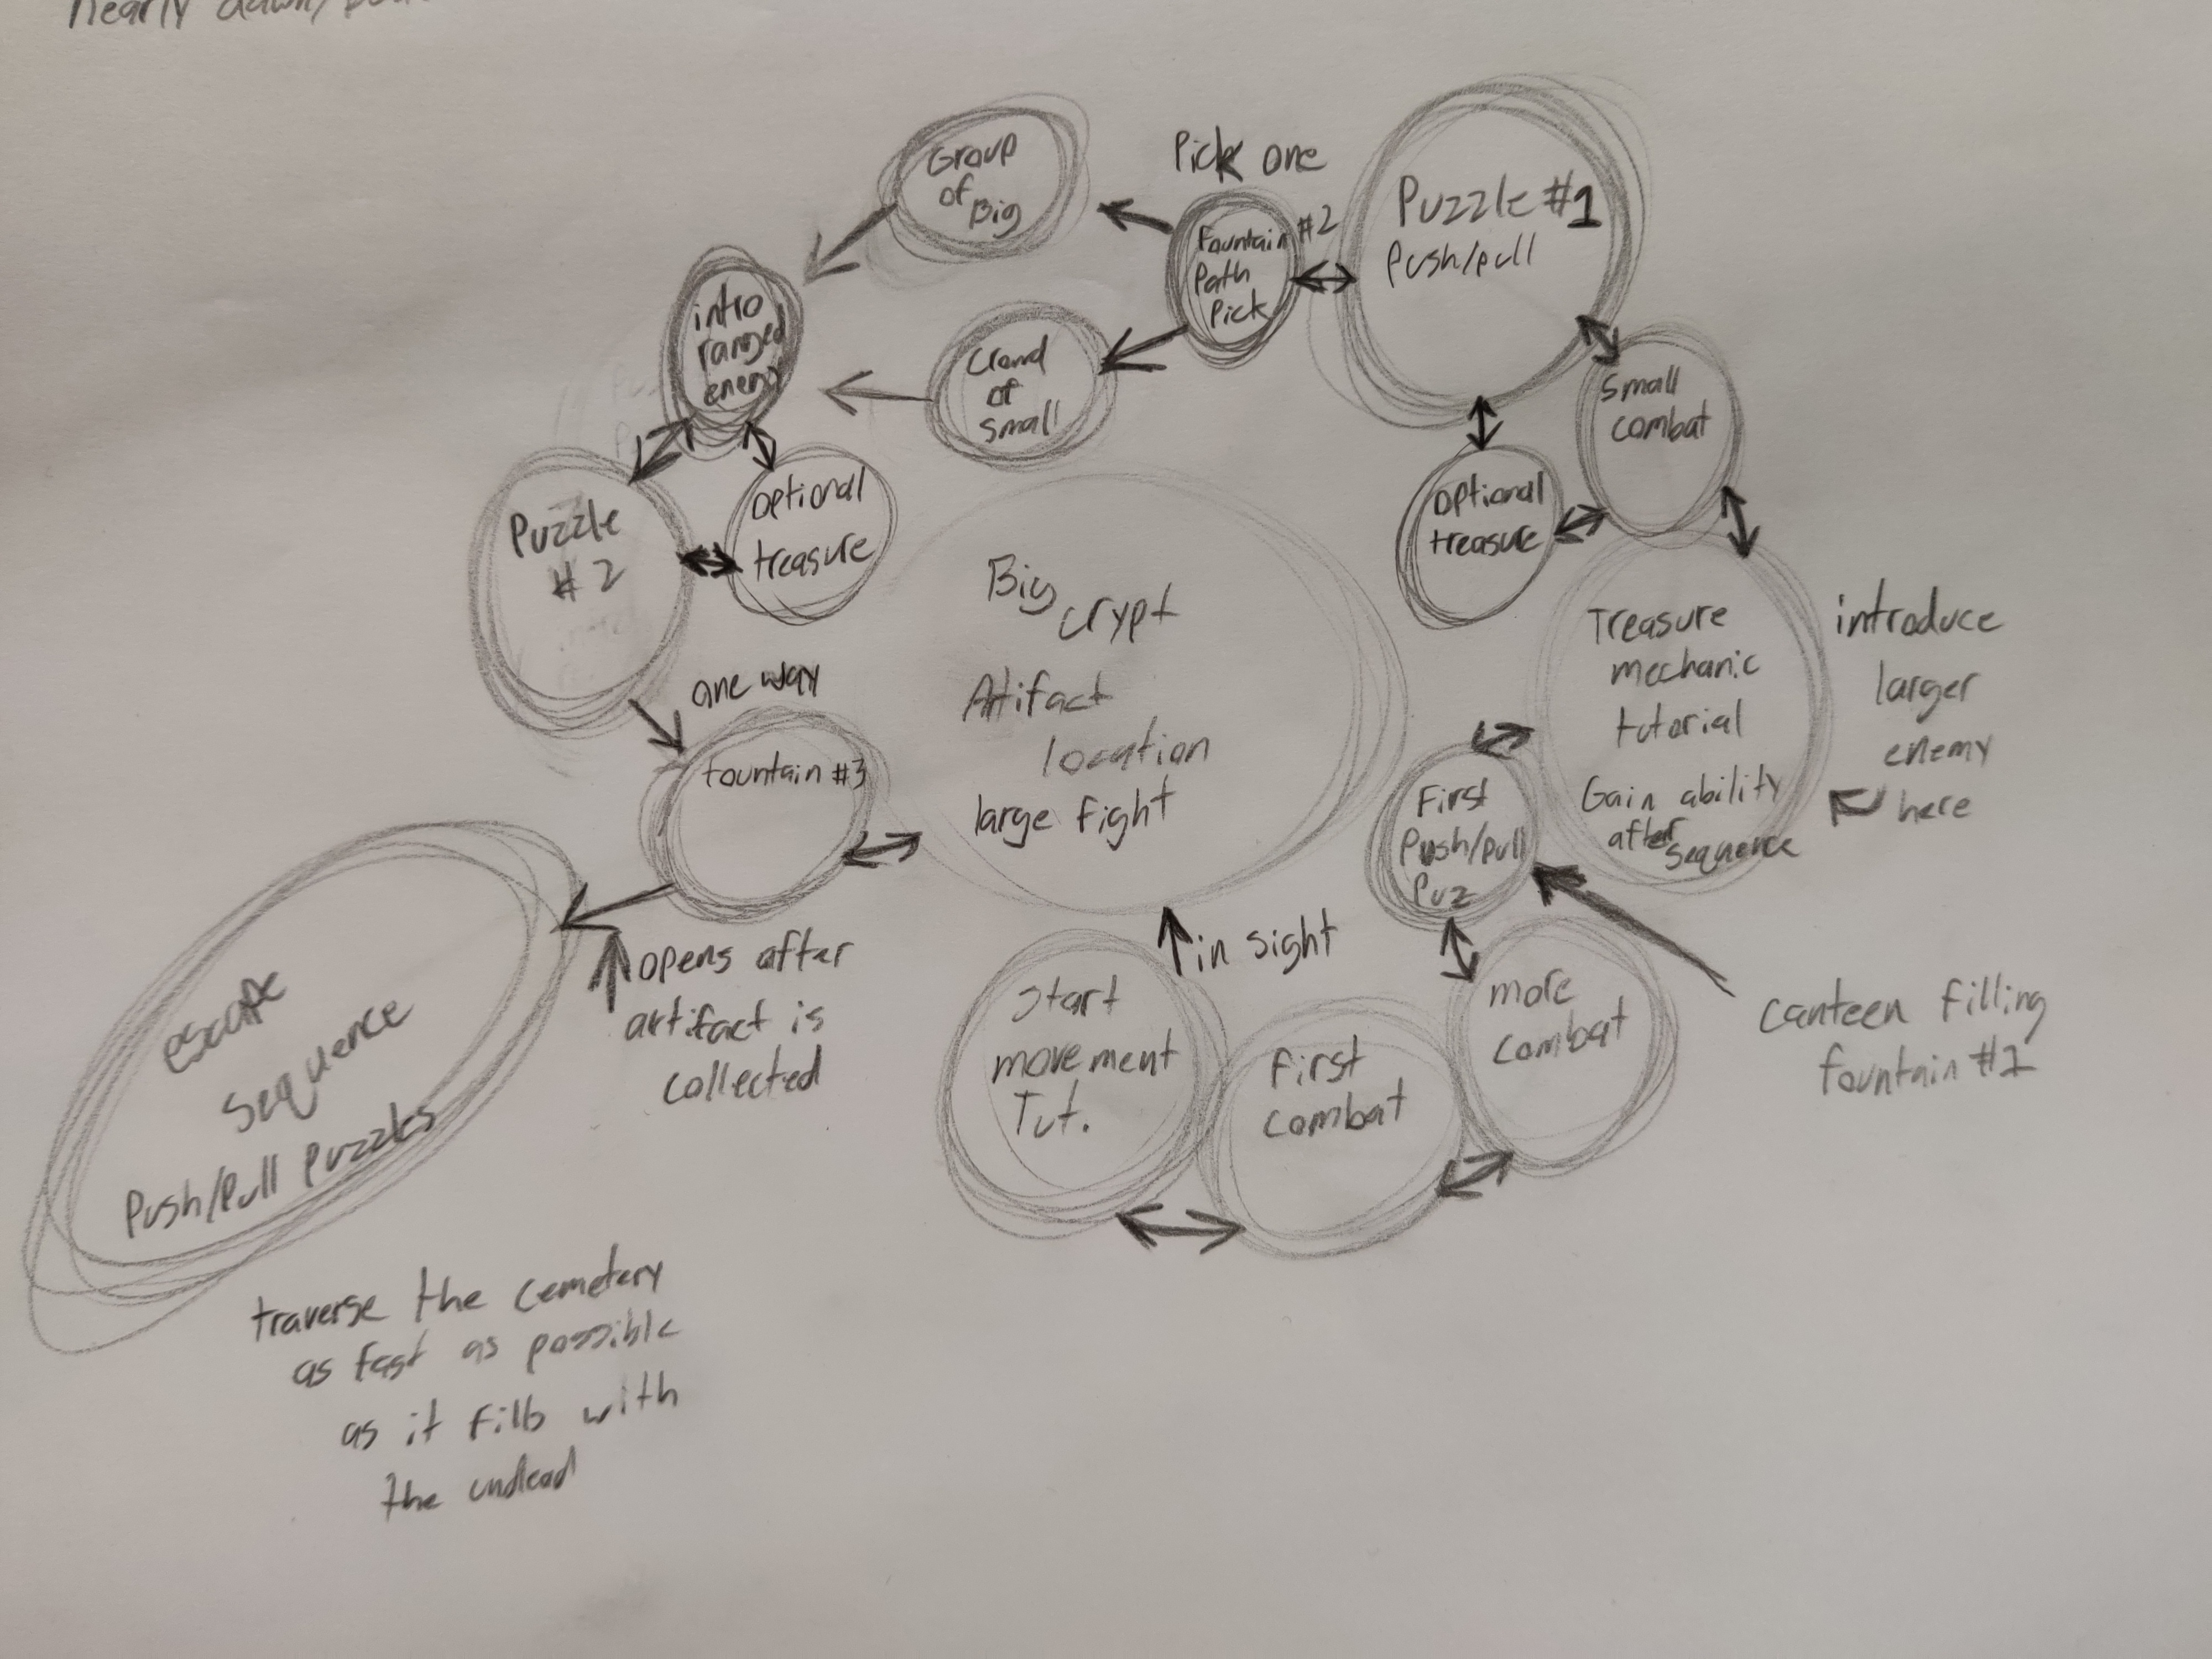 nearly dawn/
Group
of Big
Pick one
Fountain #2
Path
Pick
Puzzle #1
Push/pull
intro
ranged
enemy
Crowd
of
small
small
combat
optional
treasure
optional
treasure
Puzzle
#2
Big
crypt
Artifact
location
large fight
Treasure
mechanic
tutorial
Gain ability
after
sequence
introduce
larger
enemy
here
one way
fountain #3
First
Push/pull
Puz
in sight
opens after
artifact is
collected
Start
movement
Tut.
first
combat
more
combat
canteen filling
fountain #1
escape
sequence
Push/Pull Puzzles
traverse the cemetery
as fast as possible
as it fills with
the undead